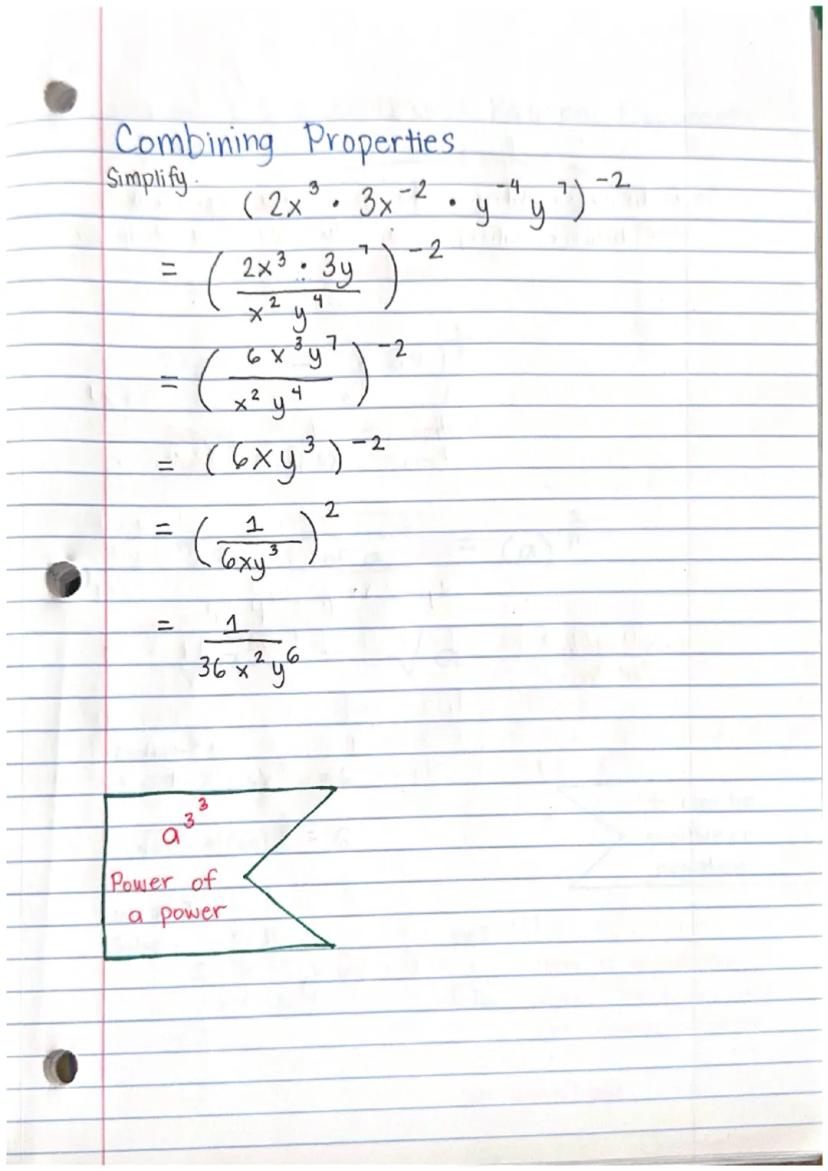 Combining Properties
Simplify.
(2x³ · 3x⁻² · y⁻⁴y⁷)⁻²
= (2x³ · 3y⁷ / x² y⁴)⁻²
= (6x³y⁷ / x² y⁴)⁻²
= (6xy³)⁻²
= (1 / 6xy³)²
= 1 / 36x²y⁶
a^3^3
Power of
a power